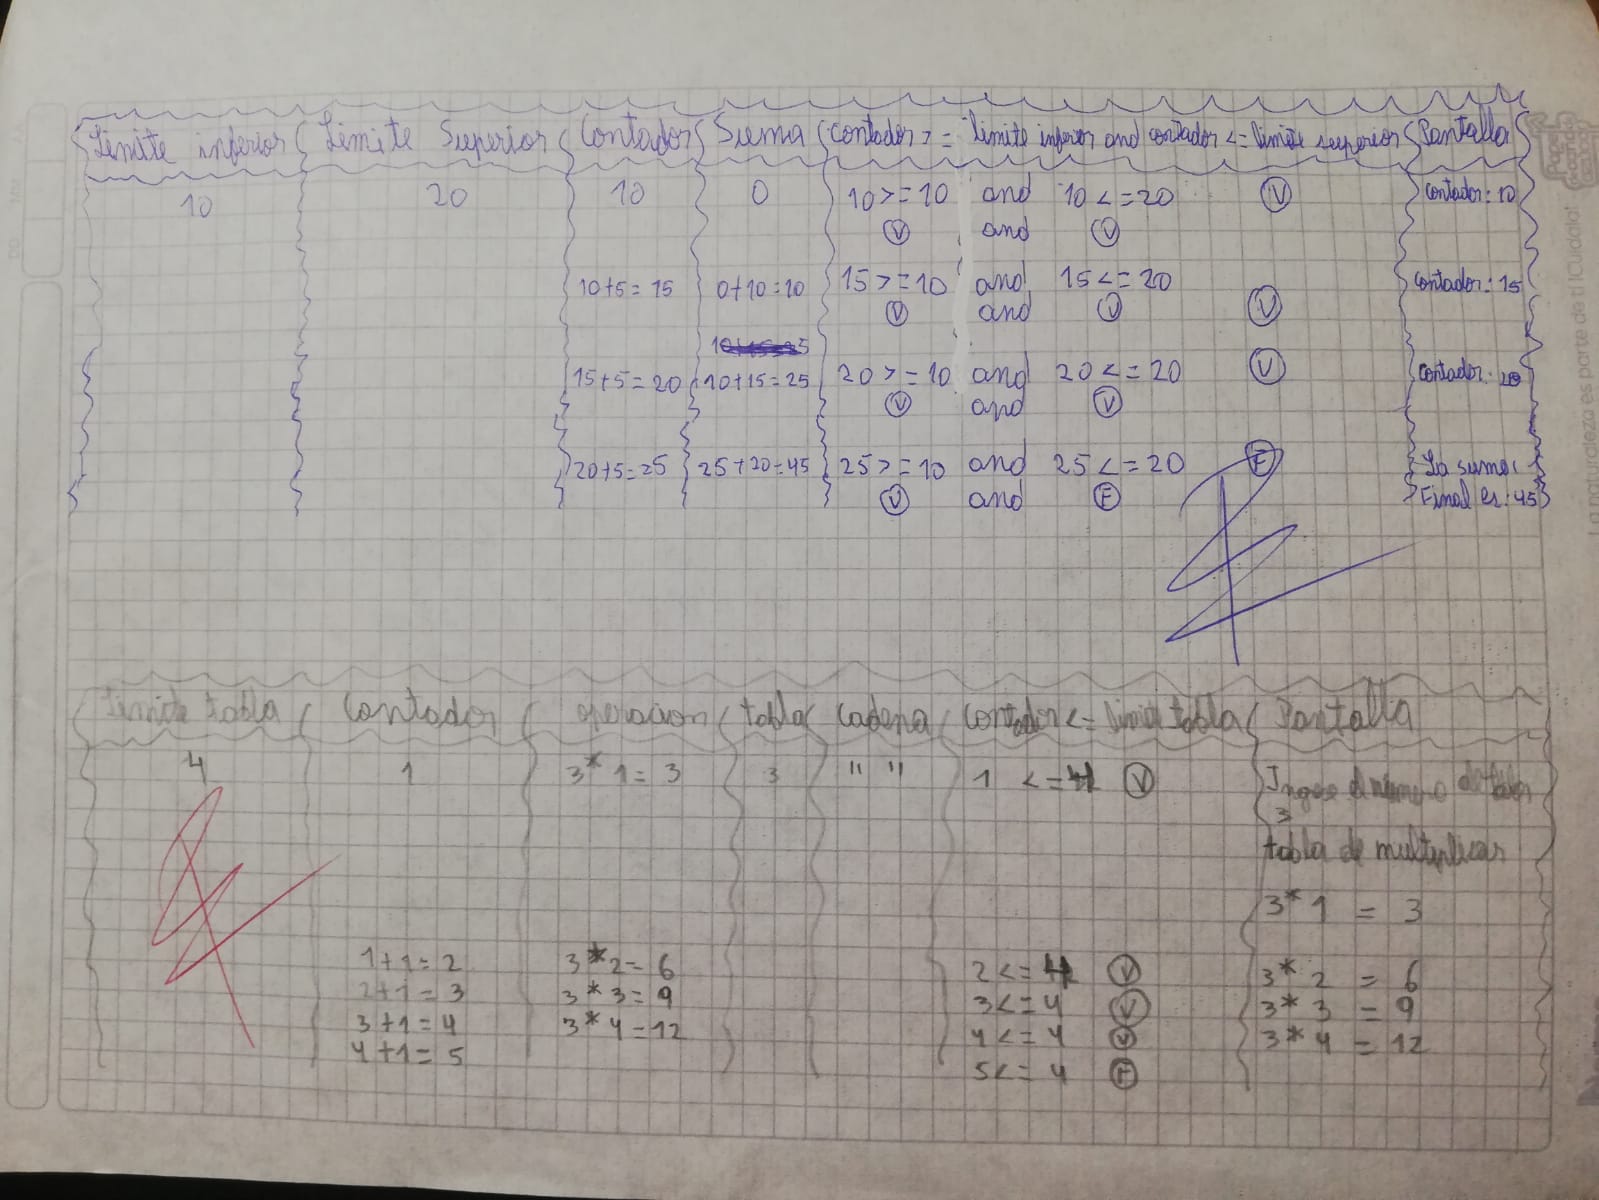 Límite inferior Límite Superior Contador Suma contador >= límite inferior and contador <= límite superior Pantalla
10 20 10 0 10 >= 10 and 10 <= 20 V contador: 10
V and V
10+5=15 0+10=10 15 >= 10 and 15 <= 20 contador: 15
V and V V
15+5=20 10+15=25 20 >= 10 and 20 <= 20 V contador: 20
V and V
20+5=25 25+20=45 25 >= 10 and 25 <= 20 F La suma
V and F Final es: 45
Limite tabla Contador operacion tabla Cadena Contador <= limite tabla Pantalla
4 1 3*1=3 3 " " 1 <= 4 V Ingrese el numero de
3
tabla de multiplicar
3*1 = 3
1+1=2 3*2=6 2<=4 V 3*2 = 6
2+1=3 3*3=9 3<=4 V 3*3 = 9
3+1=4 3*4=12 4<=4 V 3*4 = 12
4+1=5 5<=4 F
La naturaleza es parte de ti ¡Cuídala!